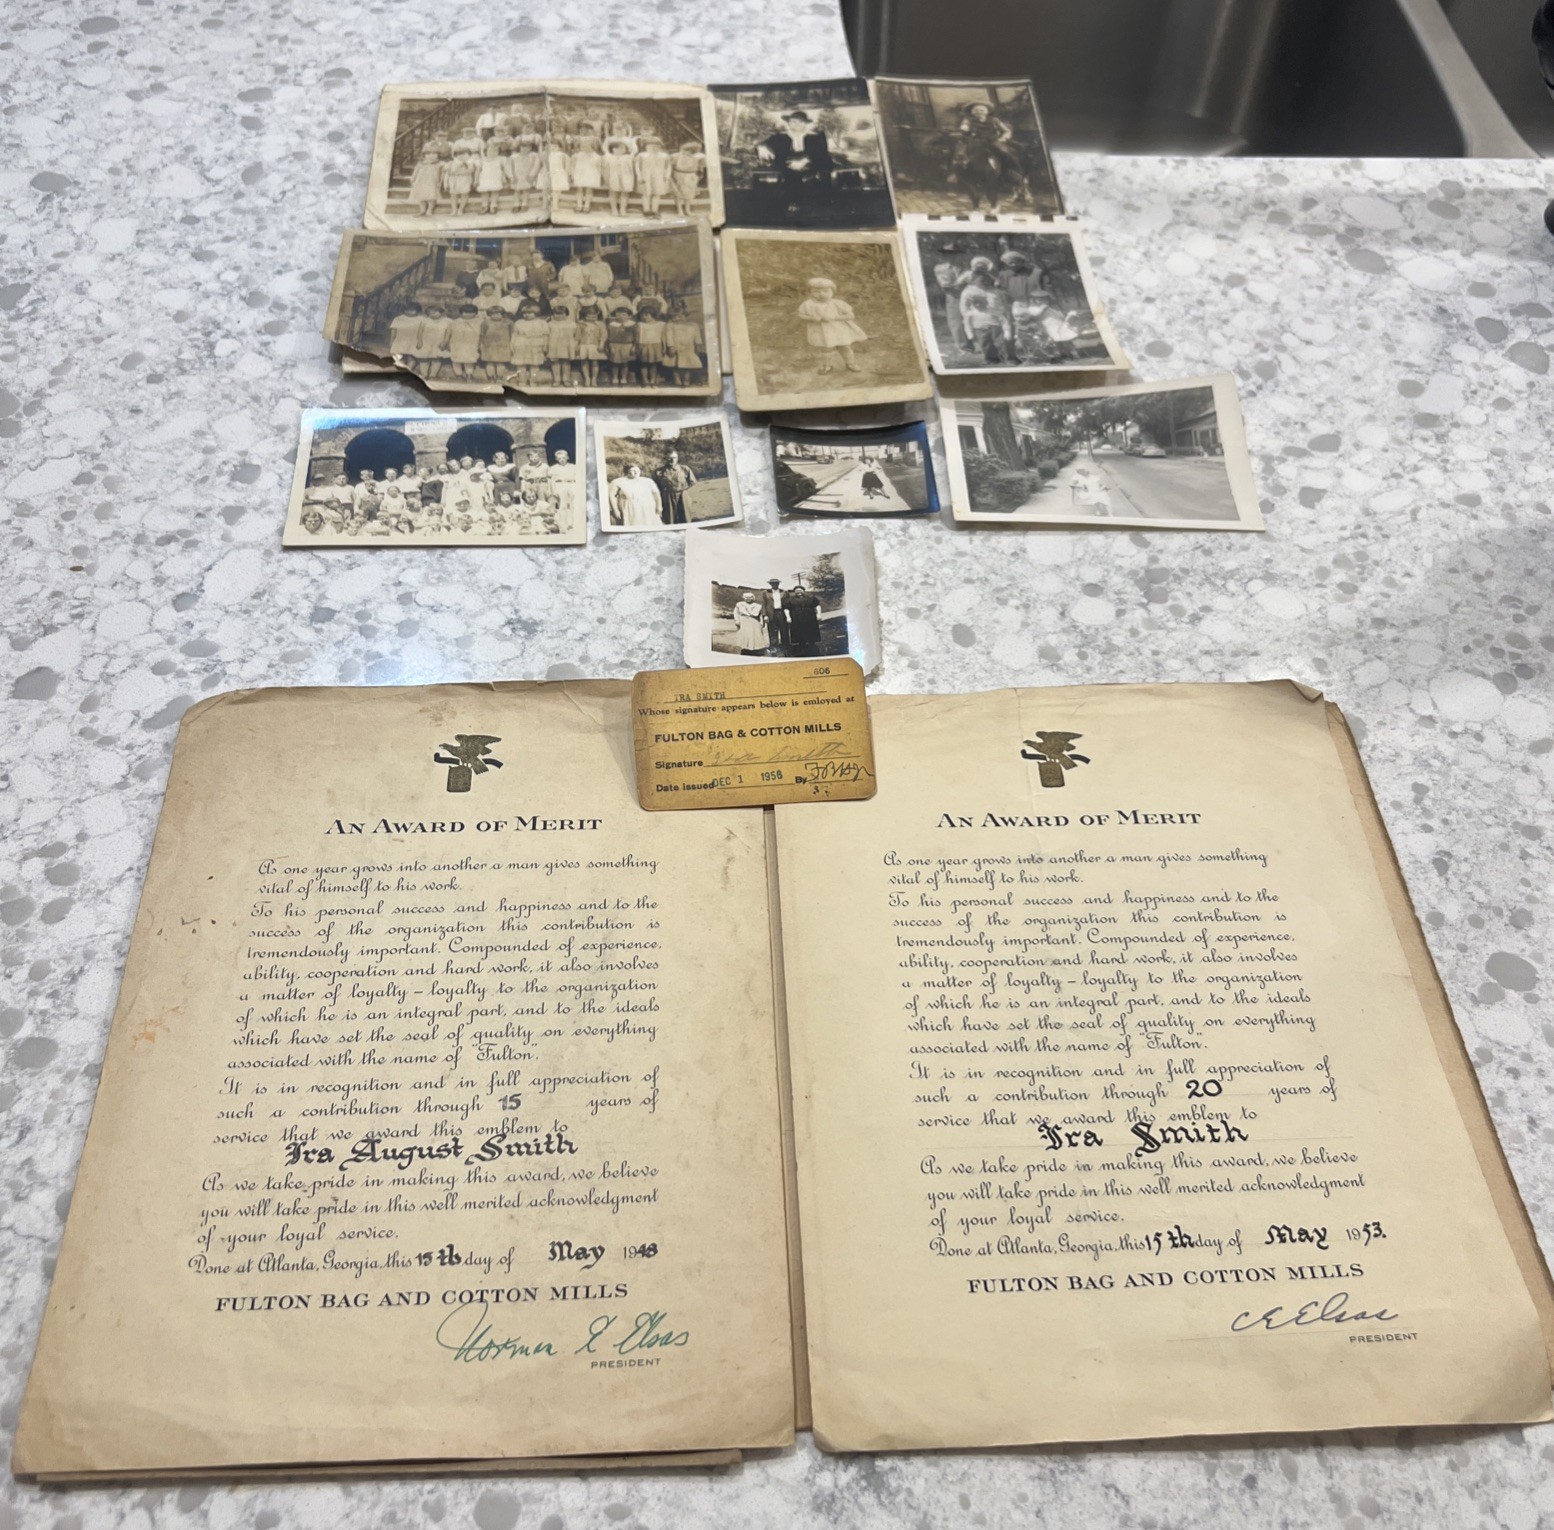 606
IRA SMITH
Whose signature appears below is emloyed at
FULTON BAG & COTTON MILLS
Signature Ira Smith
Date Issued DEC 1 1956 By
AN AWARD OF MERIT
As one year grows into another a man gives something
vital of himself to his work.
To his personal success and happiness and to the
success of the organization this contribution is
tremendously important. Compounded of experience,
ability, cooperation and hard work, it also involves
a matter of loyalty – loyalty to the organization
of which he is an integral part, and to the ideals
which have set the seal of quality on everything
associated with the name of "Fulton".
It is in recognition and in full appreciation of
such a contribution through 15 years of
service that we award this emblem to
Ira August Smith
As we take pride in making this award, we believe
you will take pride in this well merited acknowledgment
of your loyal service.
Done at Atlanta, Georgia, this 15th day of May 1948
FULTON BAG AND COTTON MILLS
Norman E Elsas
PRESIDENT
AN AWARD OF MERIT
As one year grows into another a man gives something
vital of himself to his work.
To his personal success and happiness and to the
success of the organization this contribution is
tremendously important. Compounded of experience,
ability, cooperation and hard work, it also involves
a matter of loyalty – loyalty to the organization
of which he is an integral part, and to the ideals
which have set the seal of quality on everything
associated with the name of "Fulton".
It is in recognition and in full appreciation of
such a contribution through 20 years of
service that we award this emblem to
Ira Smith
As we take pride in making this award, we believe
you will take pride in this well merited acknowledgment
of your loyal service.
Done at Atlanta, Georgia, this 15th day of May 1953.
FULTON BAG AND COTTON MILLS
C E Elsas
PRESIDENT